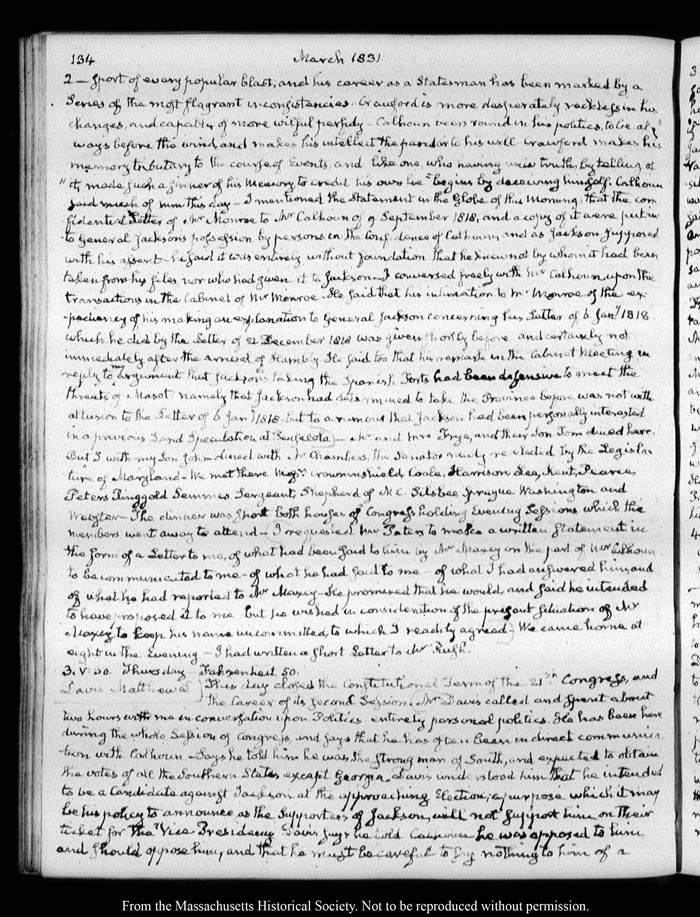 134 March 1831
2 — sport of every popular blast, and his career as a Statesman has been marked by a
Series of the most flagrant inconsistencies. Crawford is more desperately reckless in his
changes, and capable of more wilful perfidy — Calhoun veers round in his politics, to be al-
ways before the wind, and makes his intellect the pandar to his will. Crawford makes his
memory tributary to the course of Events, and like one, who having unto truth by telling of
"it, made such a sinner of his Memory to credit his own lie" begins by deceiving himself. Calhoun
said much of him this day — I mentioned the Statement in the Globe of this Morning, that the con
fidential Letter of Mr Monroe to Mr Calhoun of 9 September 1818, and a copy of it were put in
to General Jackson's possession by persons in the Confidence of Calhoun and as Jackson supposed
with his assent — he said it was entirely without foundation. That he knew not by whom it had been
taken from his files, nor who had given it to Jackson — I conversed freely with Mr Calhoun upon the
transactions in the Cabinet of Mr Monroe — He said that his intimation to Mr Monroe of the ex-
-pediency of his making an explanation to General Jackson concerning his Letter of 6 Jany 1818
which he did by the Letter of 21 December 1818 was given shortly before and certainly not
immediately after the arrival of Hambly. He said too that his remark in the Cabinet Meeting in
reply to my Argument that Jackson's taking the Spanish Forts had been defensive to meet the
threats of Masot namely that Jackson had determined to take the Province before was not with
allusion to the Letter of 6 Jany 1818. but to a rumour that Jackson had been personally interested
in a previous Land Speculation at Pensacola — Mr and Mrs Frye, and their Son Tom dined here.
But I with my Son John dined with Mr Chambers, the Senator newly re elected by the Legisla-
ture of Maryland — We met there Messrs Crowninshield, Coale, Harrison, Lee, Kent, Pearce,
Peters Ringgold Semmes Sergeant, Shepherd of N.C. Silsbee Sprague Washington and
Webster — The dinner was short both houses of Congress holding Evening Sessions which the
members went away to attend — I requested Mr Peters to make a written statement in
the form of a Letter to me, of what had been said to him by Mr Maxcy on the part of Mr Calhoun
to be communicated to me — of what he had said to me — of what I had answered him, and
of what he had reported to Mr Maxcy — He promised that he would and said he intended
to have proposed it to me but he wished in consideration of the present situation of Mr
Maxcy to keep his name uncommitted, to which I readily agreed. We came home at
eight in the Evening — I had written a short Letter to Mr Rush.
3. V. 30. Thursday Fahrenheit 50.
Davis Matthew L This day closed the Constitutional Term of the 21st Congress, and
the Career of its second Session. Mr Davis called and spent about
two hours with me in conversation upon Politics entirely personal politics. He has been here
during the whole Session of Congress, and says that he has often been in direct communica-
tion with Calhoun — Says he told him he was the strong man of South, and expected to obtain
the votes of all the Southern States except Georgia. Davis understood him that he intended
to be a Candidate against Jackson at the approaching Election; a purpose which it may
be his policy to announce as the Supporters of Jackson, will not support him on their
ticket for the Vice Presidency Davis says he told Calhoun he was opposed to him
and should oppose him, and that he must be careful to say nothing to him of a
From the Massachusetts Historical Society. Not to be reproduced without permission.